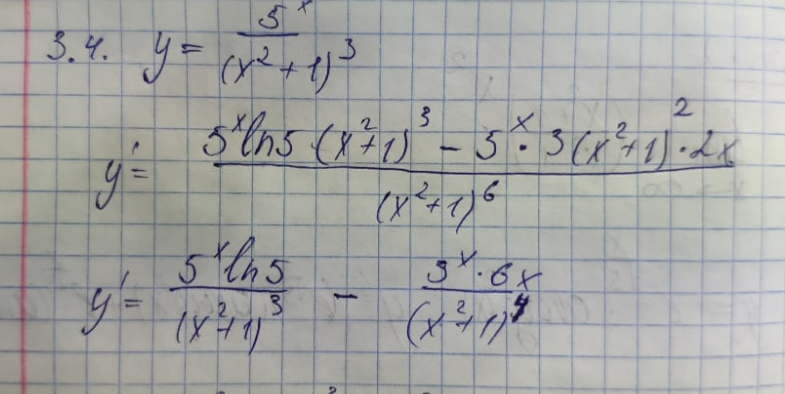 3.4. y = 5^x / (x^2 + 1)^3
y' = (5^x ln5 (x^2+1)^3 - 5^x · 3(x^2+1)^2 · 2x) / (x^2+1)^6
y' = 5^x ln5 / (x^2+1)^3 - 5^x · 6x / (x^2+1)^4